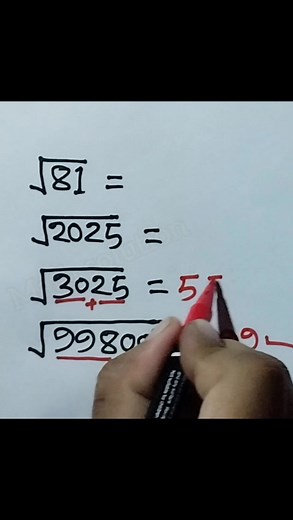 √81 =
√2025 =
√3025 = 55
+
√99800 9